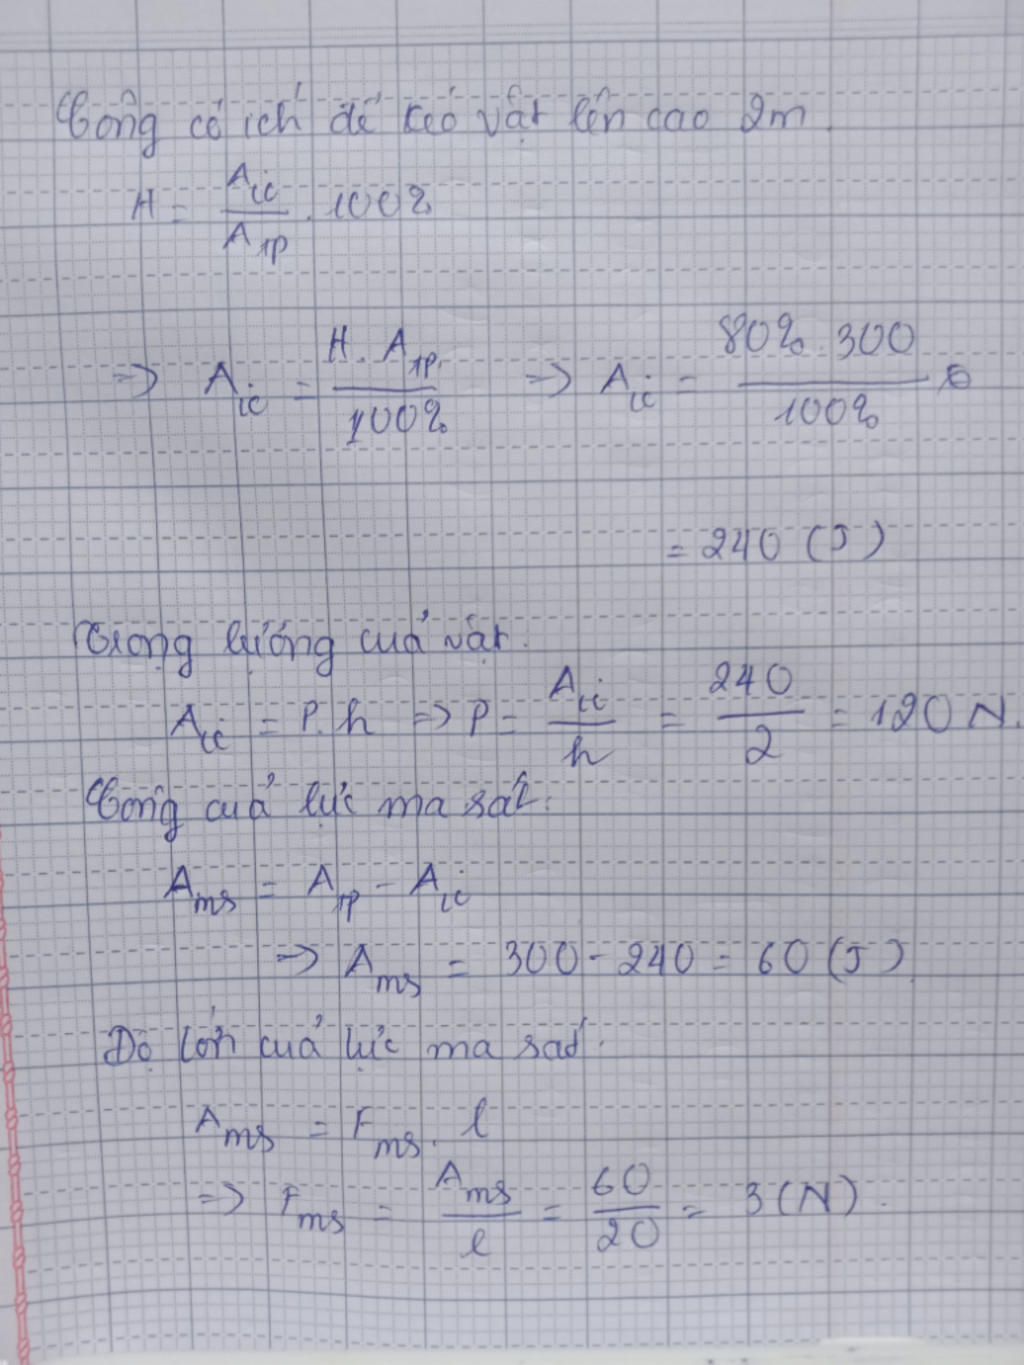 Công có ích để kéo vật lên cao 2m.
H = A_ic / A_TP . 100%
=> A_ic = H . A_TP / 100% => A_ic = 80% . 300 / 100%
= 240 (J)
Trọng lượng của vật.
A_ic = P.h => P = A_ic / h = 240 / 2 = 120 N.
Công của lực ma sát:
A_ms = A_TP - A_ic
=> A_ms = 300 - 240 = 60 (J).
Độ lớn của lực ma sát.
A_ms = F_ms . l
=> F_ms = A_ms / l = 60 / 20 = 3 (N).